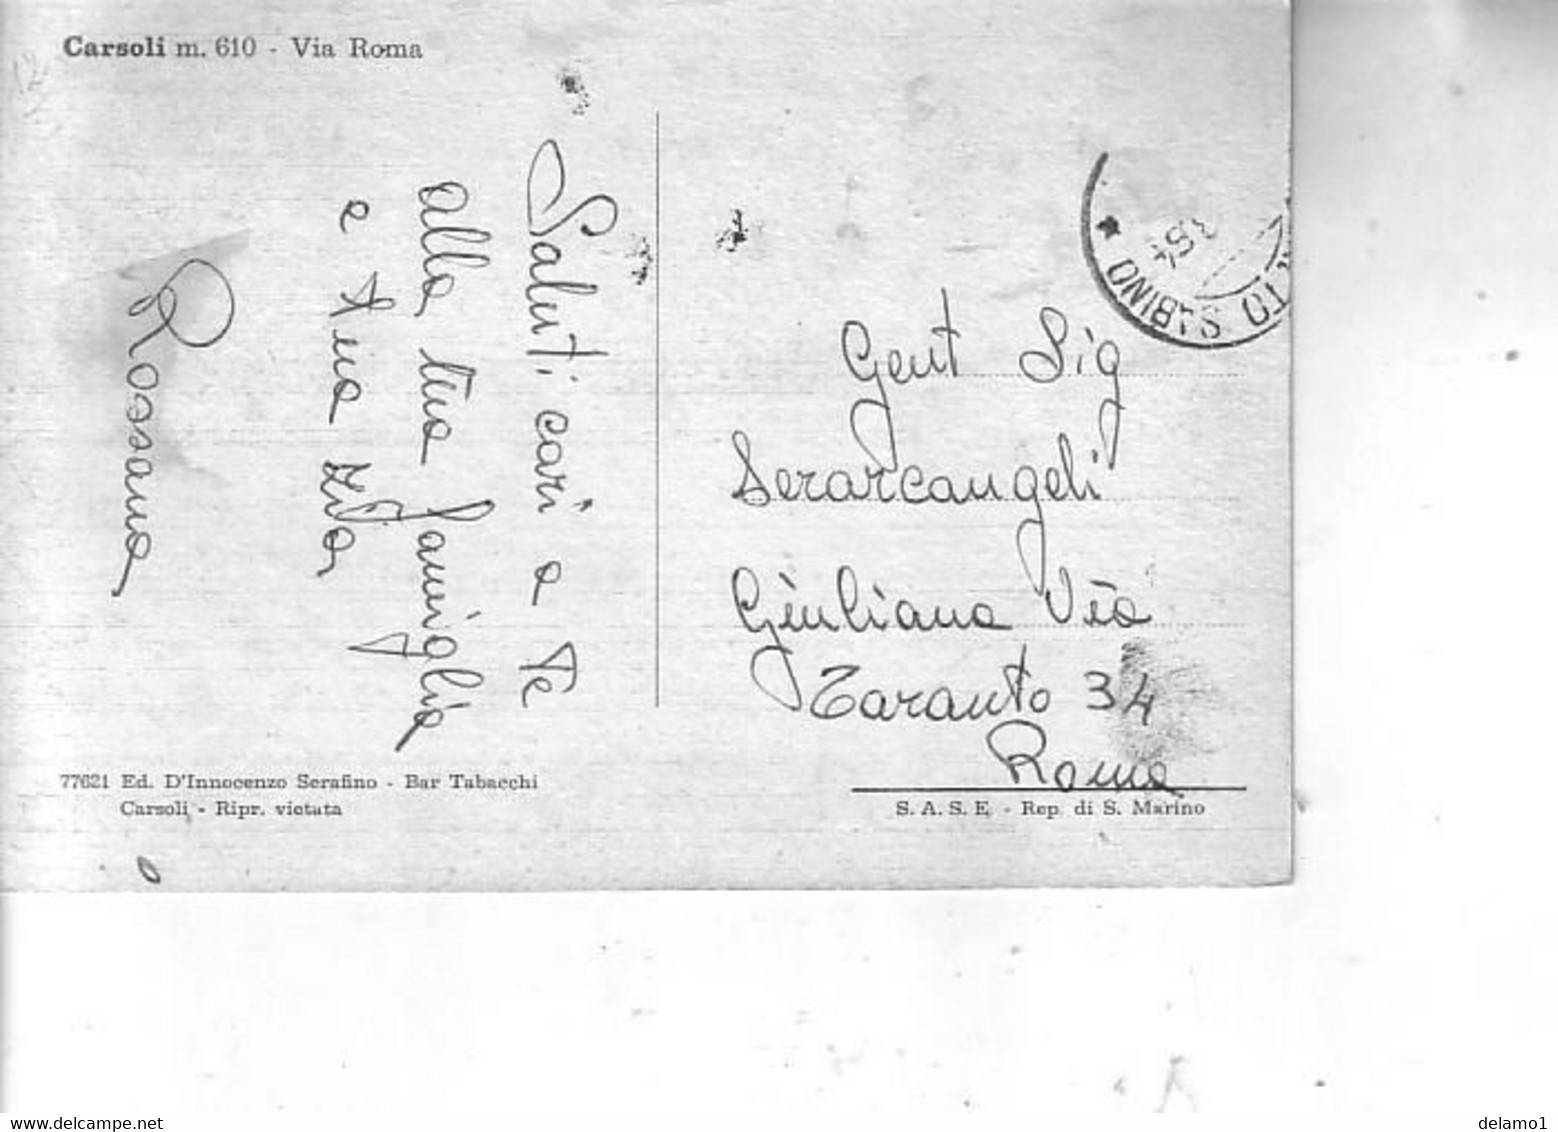 Carsoli m. 610 - Via Roma
12
Saluti cari a Te
alla tua famiglia
e tua zia
Rossana
SABINO
Gent Sig
Serarcangeli
Giuliana Via
Taranto 34
Roma
77621 Ed. D'Innocenzo Serafino - Bar Tabacchi
Carsoli - Ripr. vietata
S. A. S. E. - Rep. di S. Marino
www.delcampe.net
delamo1